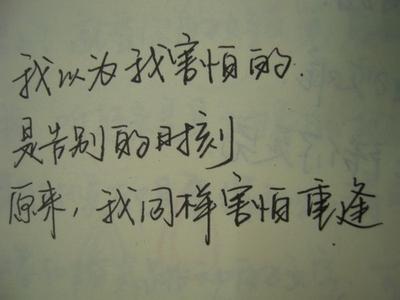 我以为我害怕的.
是告别的时刻
原来，我同样害怕重逢